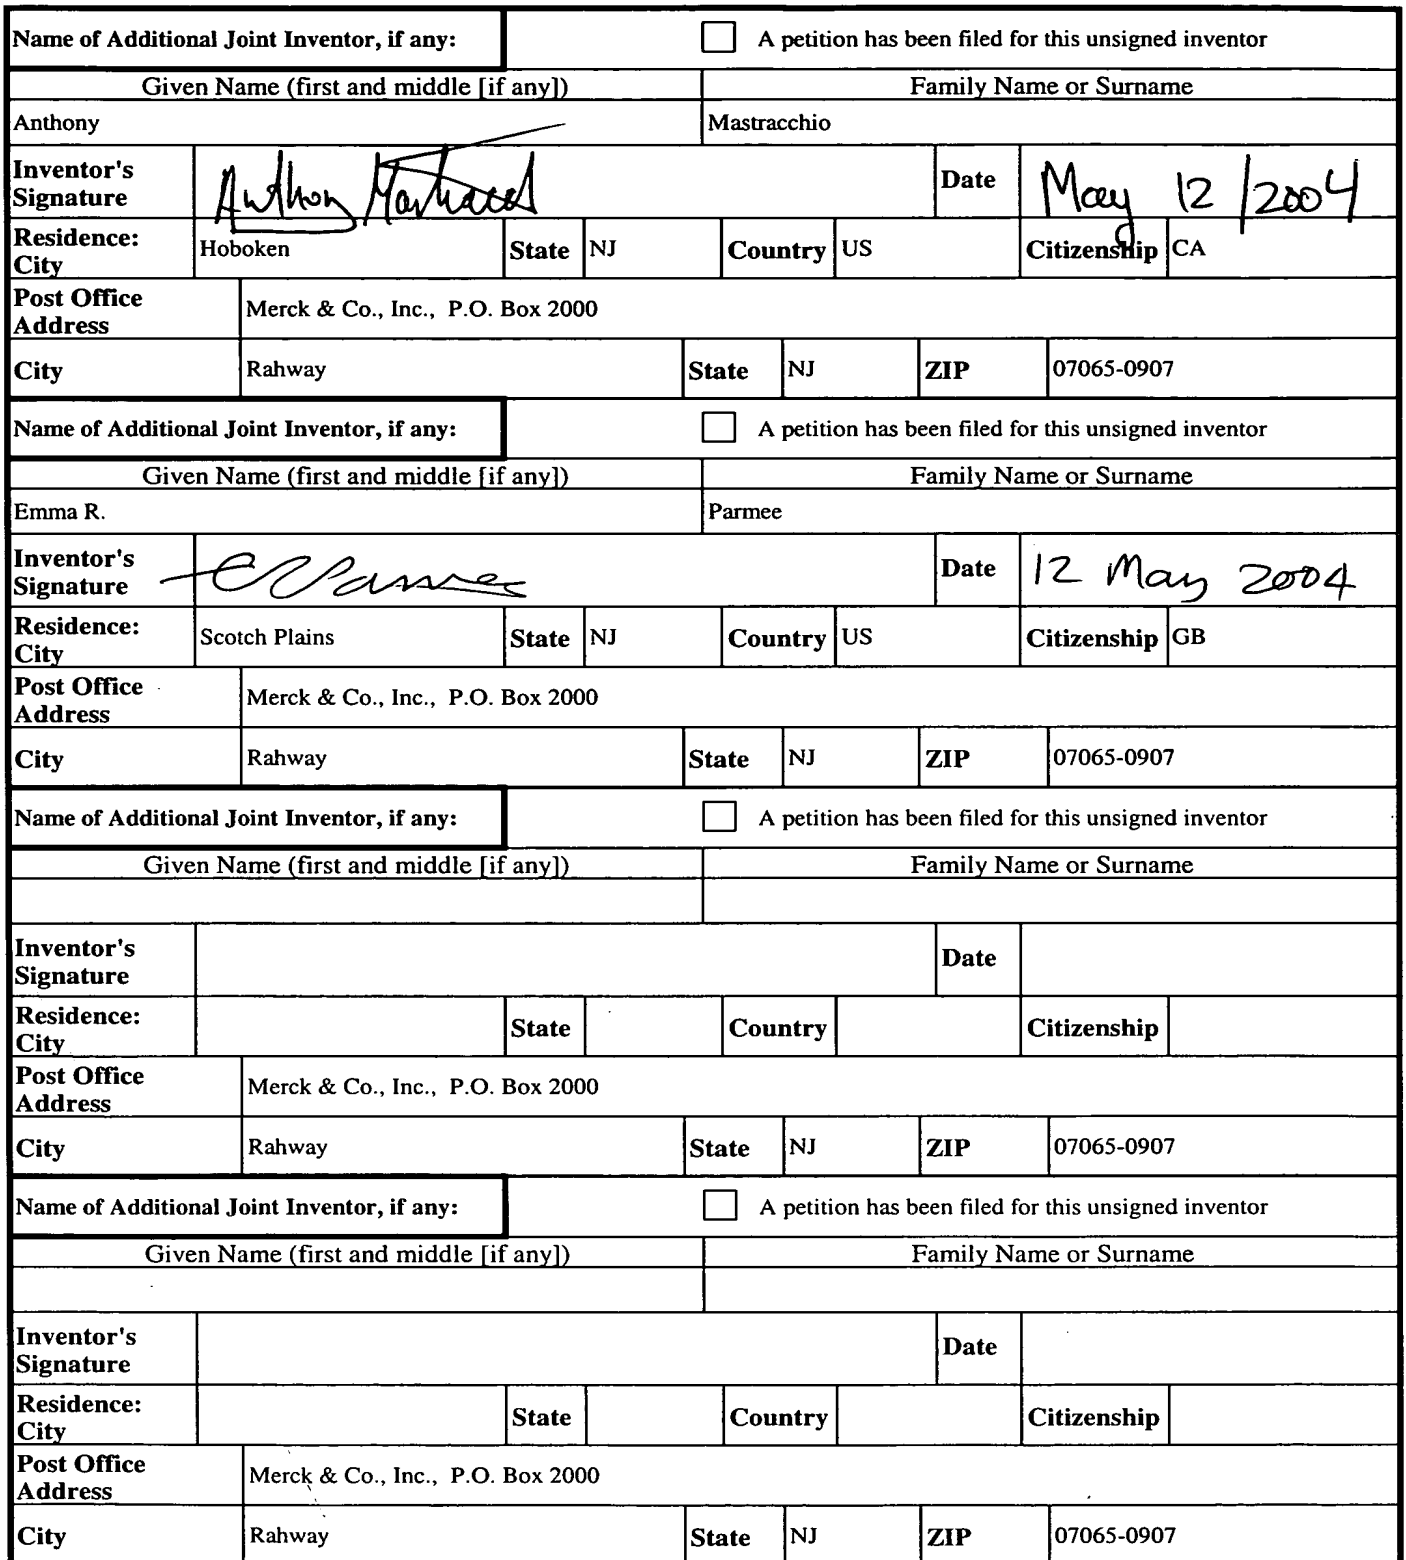 Name of Additional Joint Inventor, if any: A petition has been filed for this unsigned inventor
Given Name (first and middle [if any]) Family Name or Surname
Anthony Mastracchio
Inventor's Signature Anthony Mastracchio Date May 12/2004
Residence: City Hoboken State NJ Country US Citizenship CA
Post Office Address Merck & Co., Inc., P.O. Box 2000
City Rahway State NJ ZIP 07065-0907
Name of Additional Joint Inventor, if any: A petition has been filed for this unsigned inventor
Given Name (first and middle [if any]) Family Name or Surname
Emma R. Parmee
Inventor's Signature ERParmee Date 12 May 2004
Residence: City Scotch Plains State NJ Country US Citizenship GB
Post Office Address Merck & Co., Inc., P.O. Box 2000
City Rahway State NJ ZIP 07065-0907
Name of Additional Joint Inventor, if any: A petition has been filed for this unsigned inventor
Given Name (first and middle [if any]) Family Name or Surname
Inventor's Signature Date
Residence: City State Country Citizenship
Post Office Address Merck & Co., Inc., P.O. Box 2000
City Rahway State NJ ZIP 07065-0907
Name of Additional Joint Inventor, if any: A petition has been filed for this unsigned inventor
Given Name (first and middle [if any]) Family Name or Surname
Inventor's Signature Date
Residence: City State Country Citizenship
Post Office Address Merck & Co., Inc., P.O. Box 2000
City Rahway State NJ ZIP 07065-0907